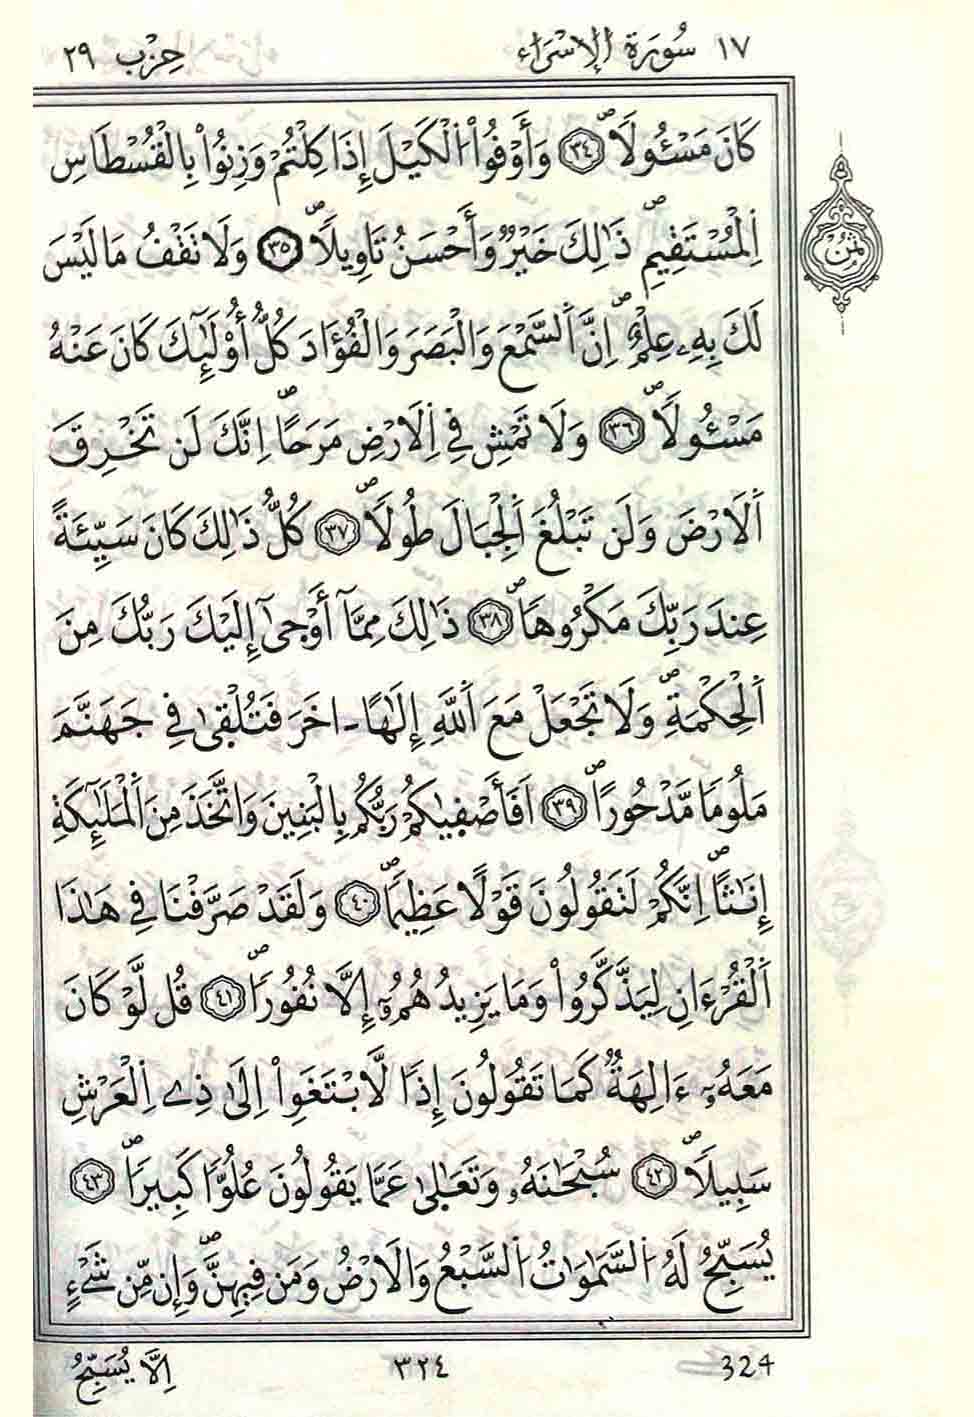 ١٧ سُورَةُ الإِسْرَاء حِزْب ٢٩
كَانَ مَسْـُٔولًاۖ ٣٤ وَأَوْفُواْ اُ۬لْكَيْلَ إِذَا كِلْتُمْ وَزِنُواْ بِالْقُسْطَاسِ
اِ۬لْمُسْتَقِيمِۖ ذَٰلِكَ خَيْرٌ وَأَحْسَنُ تَاوِيلًاۖ ٣٥ وَلَا تَقْفُ مَا لَيْسَ
لَكَ بِهِۦ عِلْمٌۖ اِنَّ اَ۬لسَّمْعَ وَالْبَصَرَ وَالْفُؤَادَ كُلُّ أُوْلَٰٓئِكَ كَانَ عَنْهُ
مَسْـُٔولًاۖ ٣٦ وَلَا تَمْشِ فِے اِ۬لَارْضِ مَرَحًاۖ اِنَّكَ لَن تَخْرِقَ
اَ۬لَارْضَ وَلَن تَبْلُغَ اَ۬لْجِبَالَ طُولًاۖ ٣٧ كُلُّ ذَٰلِكَ كَانَ سَيِّئَةً
عِندَ رَبِّكَ مَكْرُوهًاۖ ٣٨ ذَٰلِكَ مِمَّآ أَوْح۪ىٰٓ إِلَيْكَ رَبُّكَ مِنَ
اَ۬لْحِكْمَةِۖ وَلَا تَجْعَلْ مَعَ اَ۬للَّهِ إِلَٰهًا ـ اخَرَ فَتُلْق۪ىٰ فِے جَهَنَّمَ
مَلُومًا مَّدْحُورًاۖ ٣٩ اَفَأَصْف۪يٰكُمْ رَبُّكُم بِالْبَنِينَ وَاتَّخَذَ مِنَ اَ۬لْمَلَٰٓئِكَةِ
إِنَٰثًاۖ اِنَّكُمْ لَتَقُولُونَ قَوْلًا عَظِيمًاۖ ٤٠ وَلَقَدْ صَرَّفْنَا فِے هَٰذَا
اَ۬لْقُرْءَانِ لِيَذَّكَّرُواْ وَمَا يَزِيدُهُمُۥٓ إِلَّا نُفُورًاۖ ٤١ قُل لَّوْ كَانَ
مَعَهُۥٓ ءَالِهَةٌ كَمَا تَقُولُونَ إِذًا لَّابْتَغَوِاْ اِلَىٰ ذِے اِ۬لْعَرْشِ
سَبِيلًاۖ ٤٢ سُبْحَٰنَهُۥ وَتَعَٰل۪ىٰ عَمَّا يَقُولُونَ عُلُوًّا كَبِيرًاۖ ٤٣
يُسَبِّحُ لَهُ اُ۬لسَّمَٰوَٰتُ اُ۬لسَّبْعُ وَالَارْضُ وَمَن فِيهِنَّۖ وَإِن مِّن شَےْءٍ
ثُمُن
اِلَّا يُسَبِّحُ ٣٢٤ 324